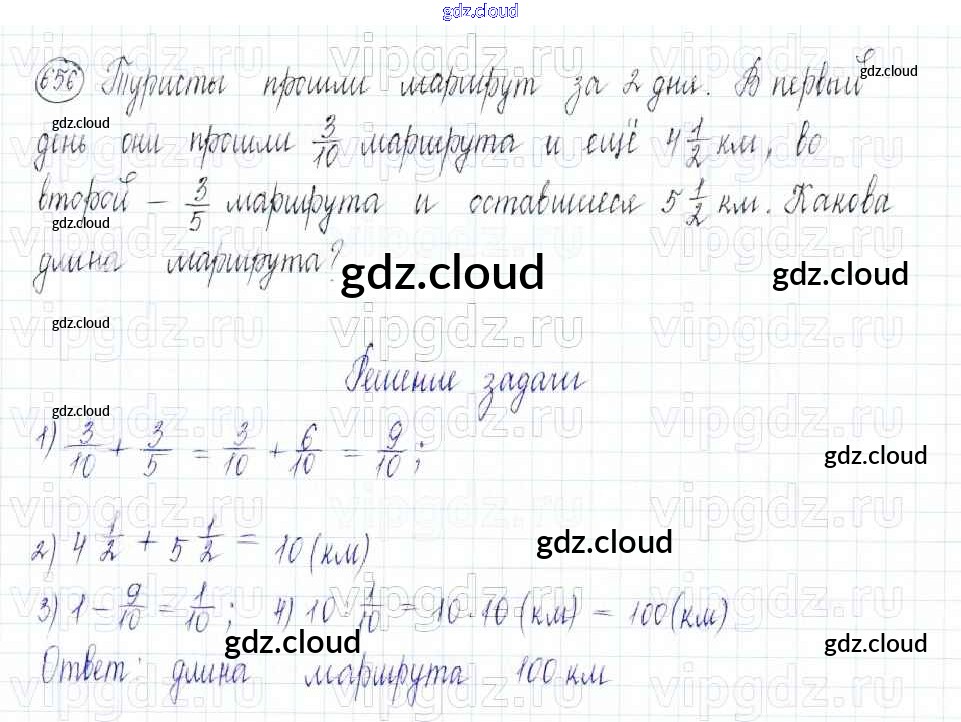 gdz.cloud
656 Туристы прошли маршрут за 2 дня. В первый gdz.cloud
gdz.cloud
день они прошли 3/10 маршрута и ещё 4 1/2 км, во
второй – 3/5 маршрута и оставшиеся 5 1/2 км. Какова
gdz.cloud
длина маршрута? gdz.cloud gdz.cloud
gdz.cloud
vipgdz.ru vipgdz.ru vipgdz.ru
Решение задачи
gdz.cloud
1) 3/10 + 3/5 = 3/10 + 6/10 = 9/10 ; gdz.cloud
vipgdz.ru vipgdz.ru vipgdz.ru
2) 4 1/2 + 5 1/2 = 10 (км) gdz.cloud
3) 1 – 9/10 = 1/10 ; 4) 10 : 1/10 = 10 · 10 (км) = 100 (км)
gdz.cloud gdz.cloud
Ответ: длина маршрута 100 км